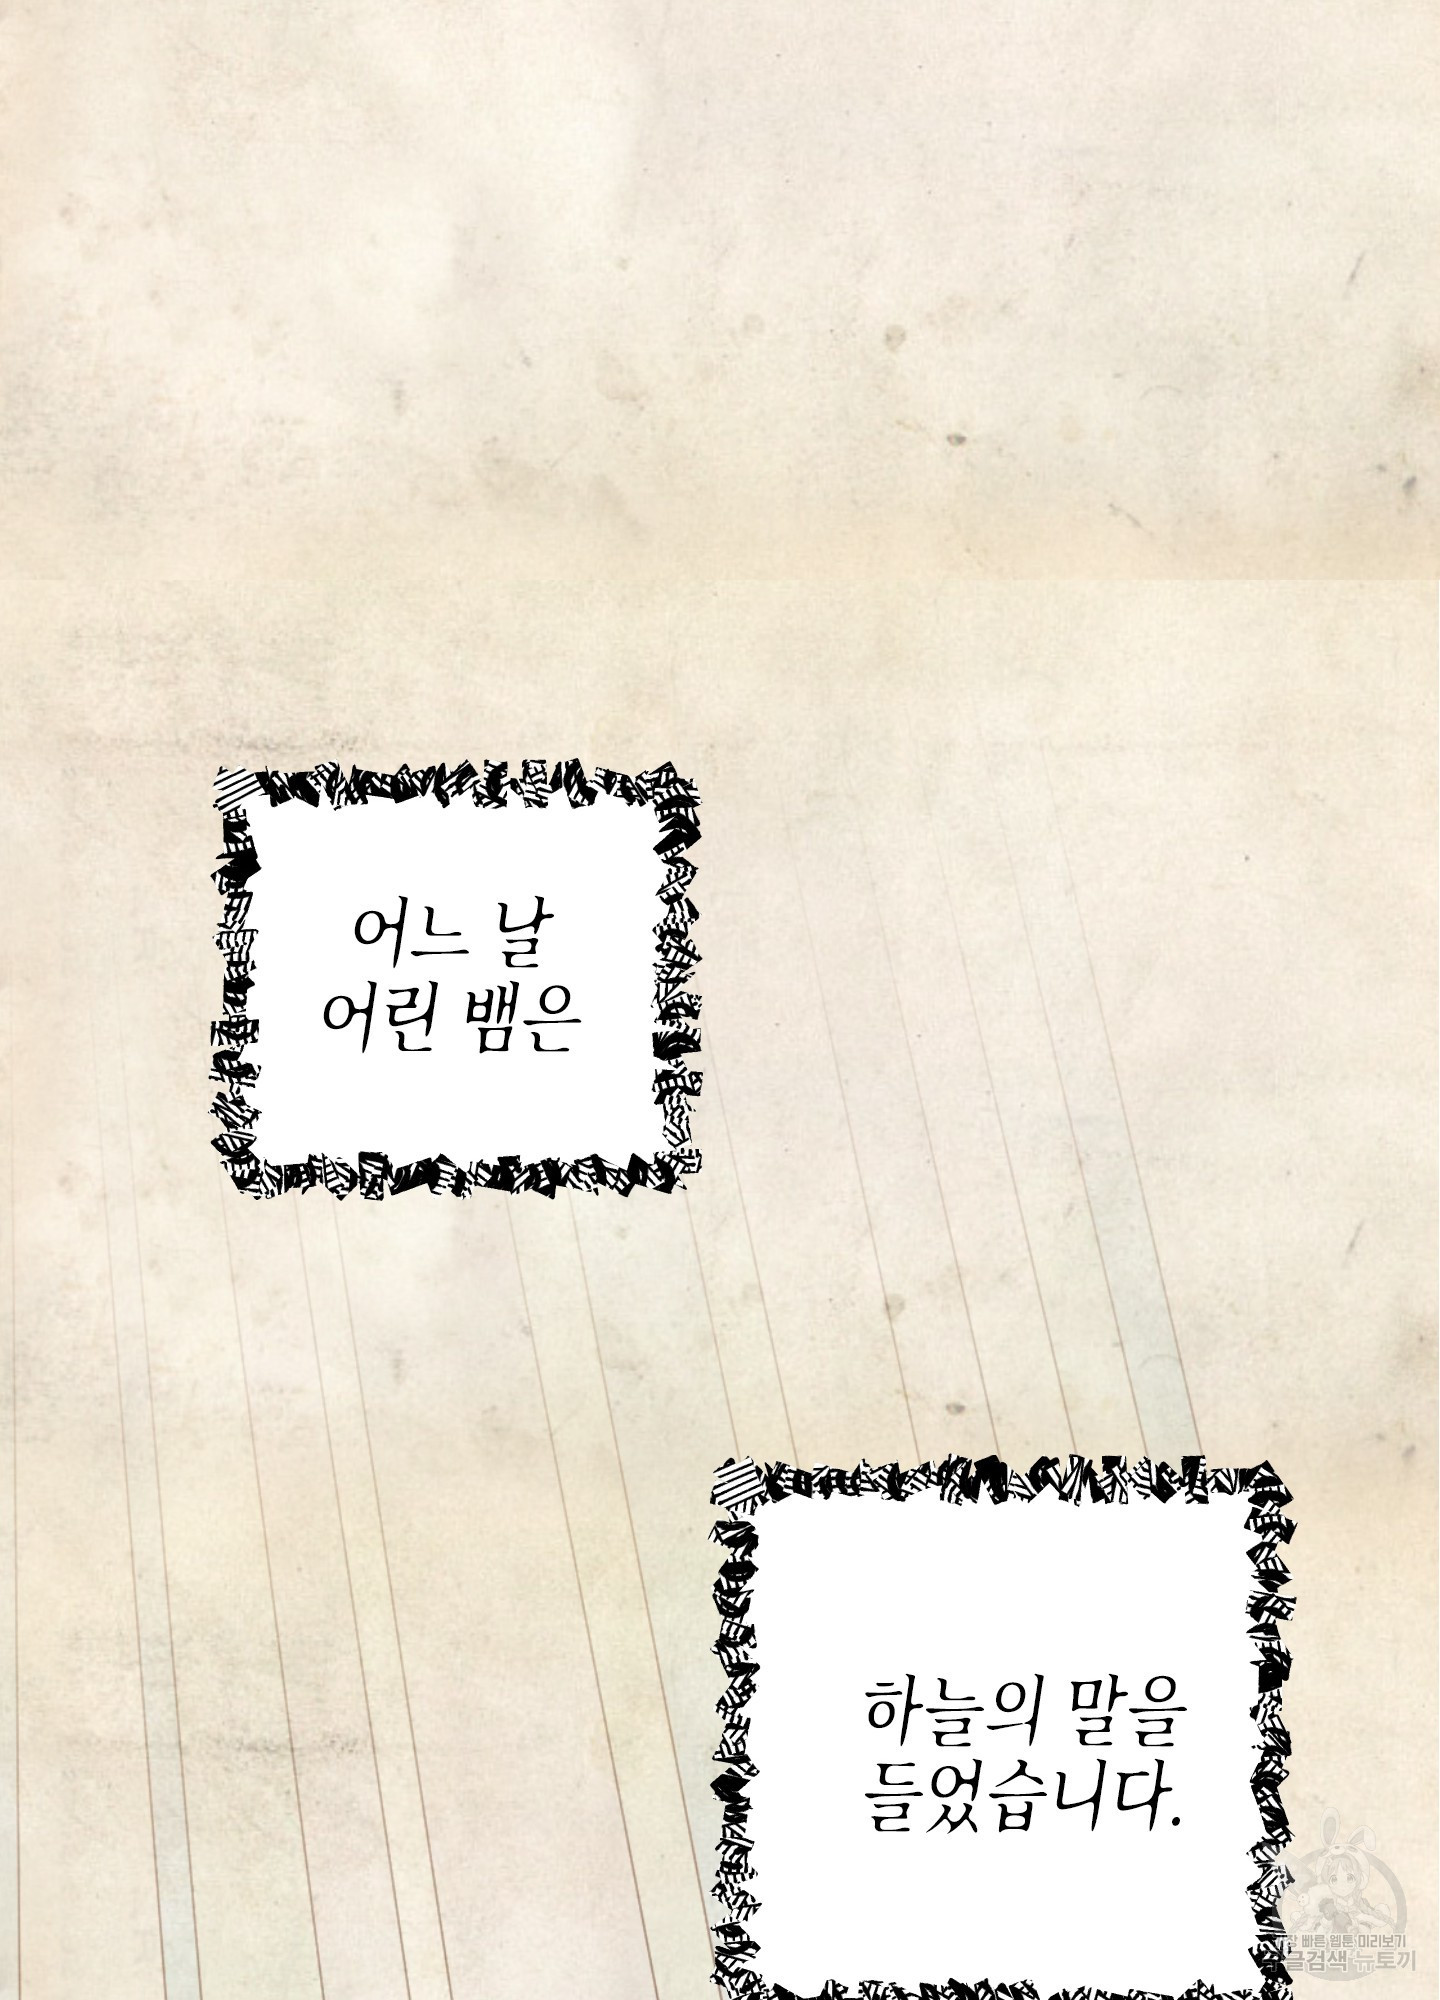 어느 날
어린 뱀은
하늘의 말을
들었습니다.
장 빠른 웹툰 미리보기
구글검색 뉴토끼